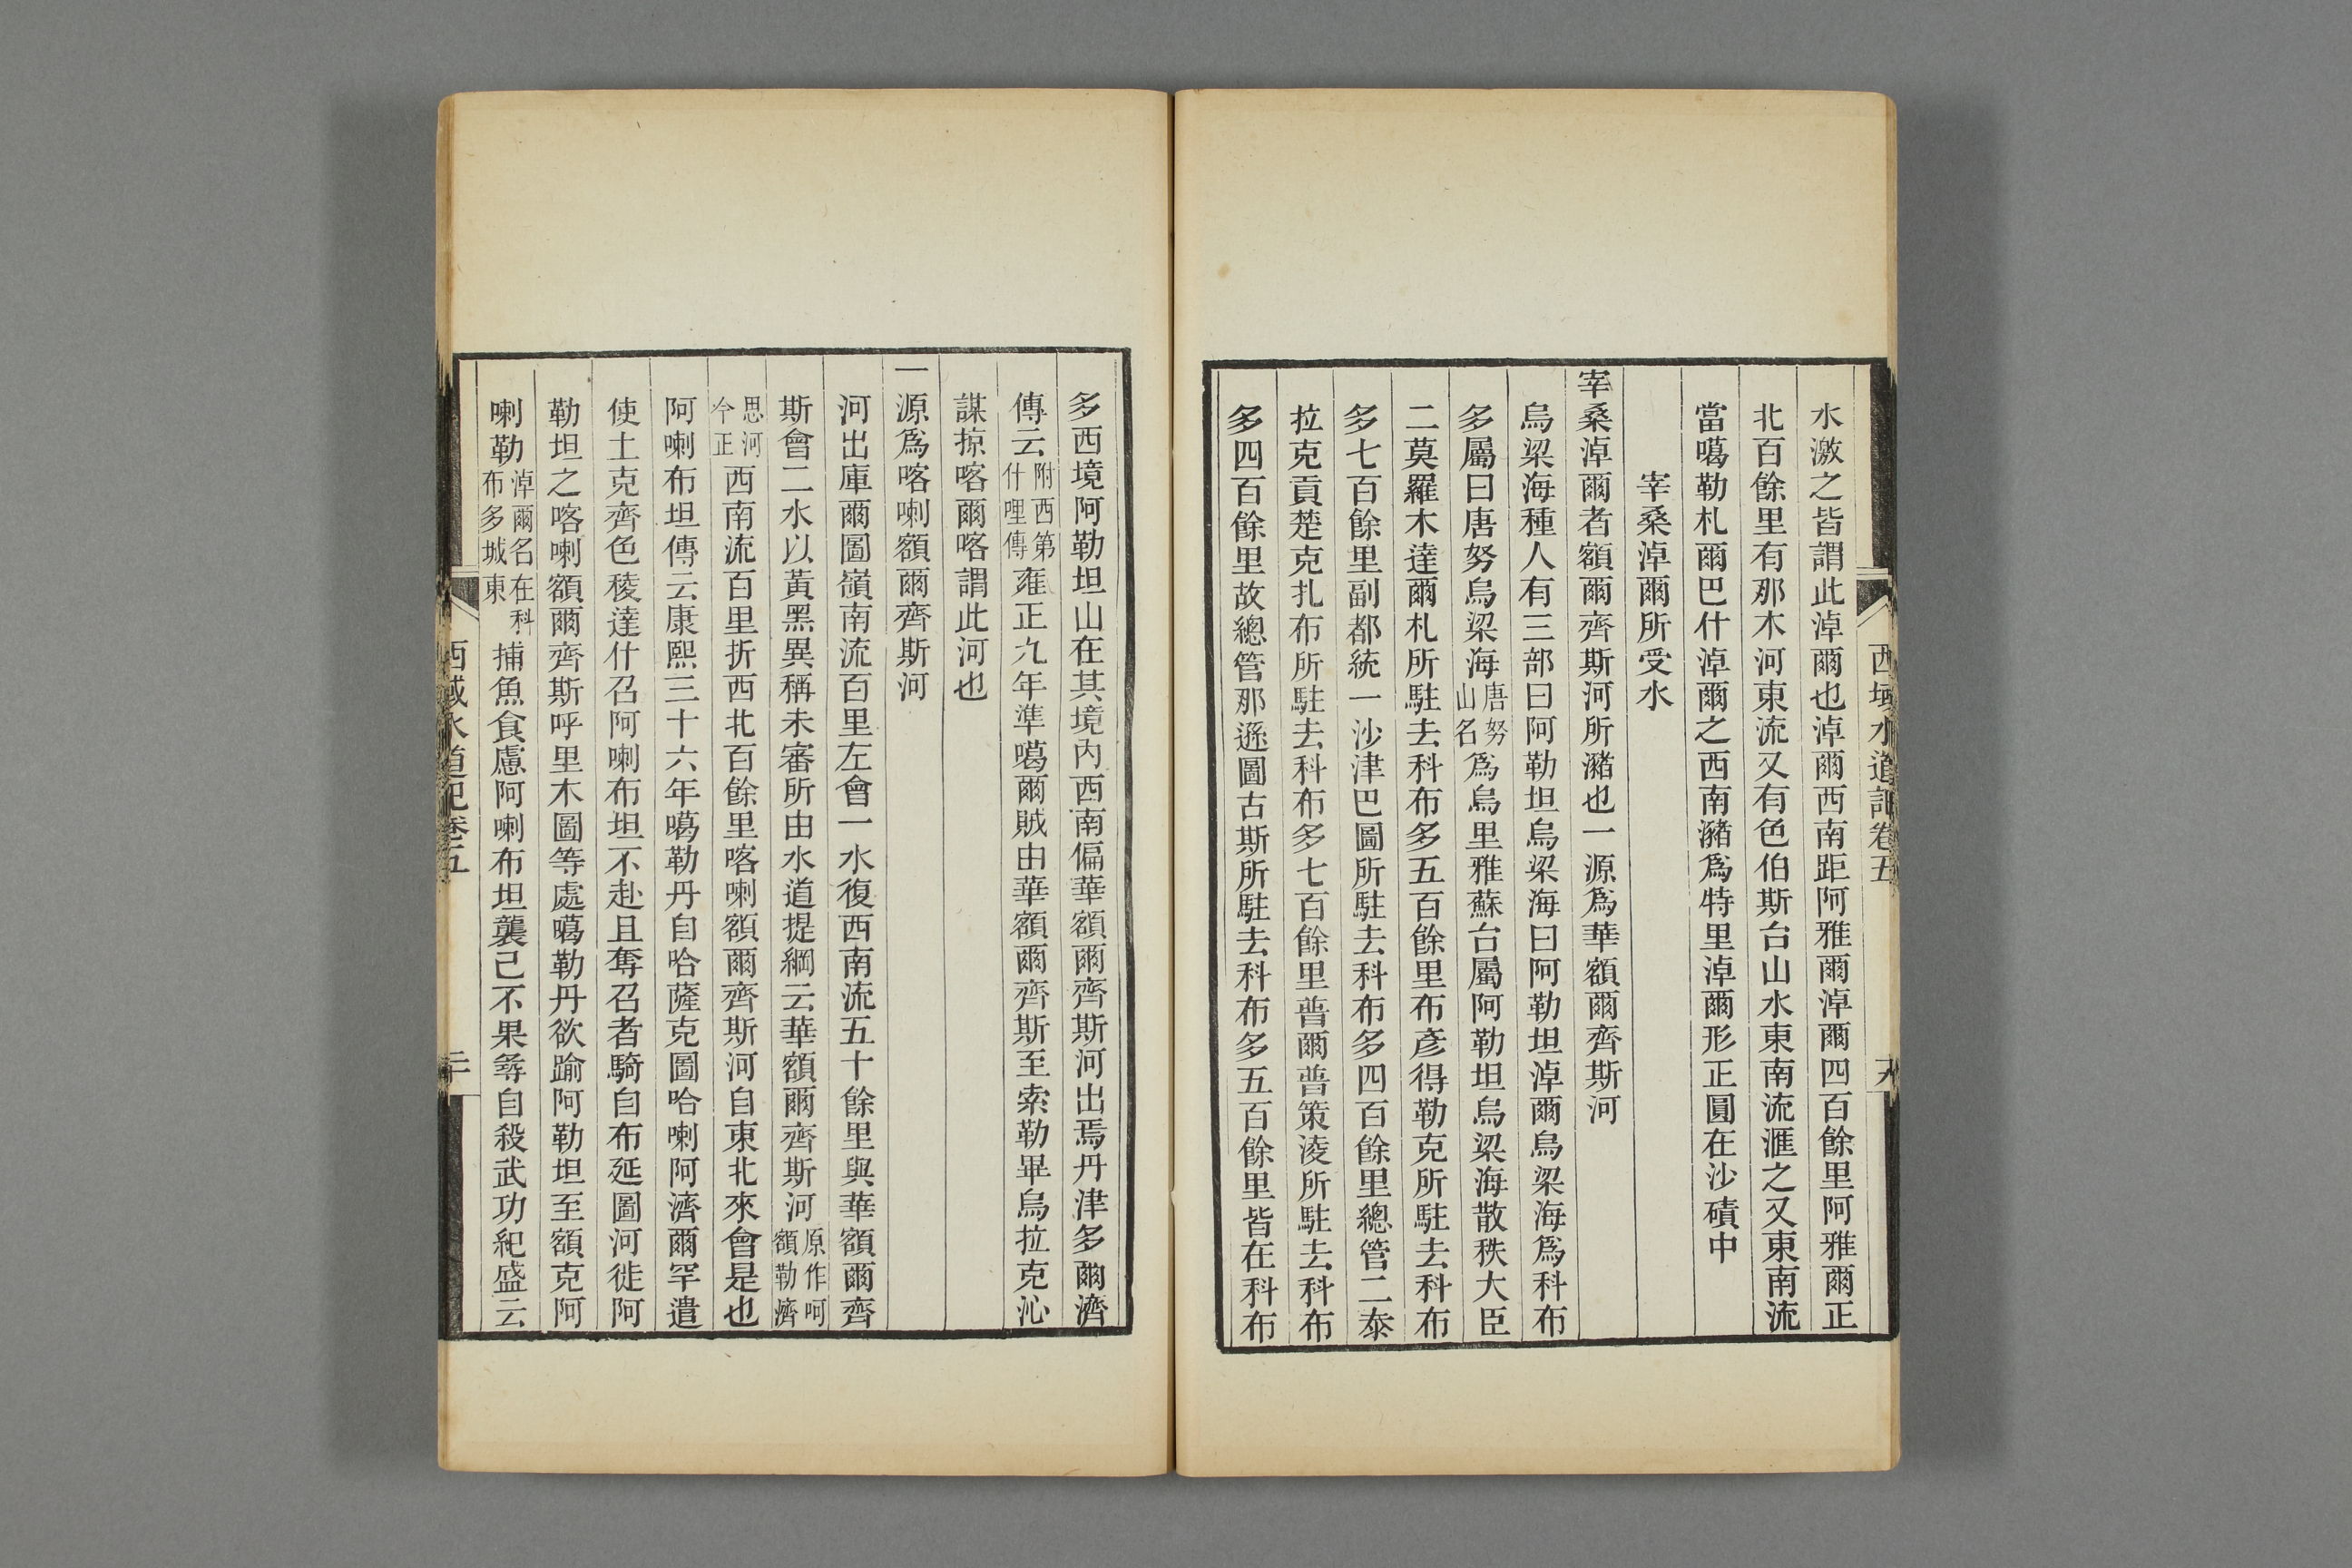 西域水道記卷五
水激之皆謂此淖爾也淖爾西南距阿雅爾淖爾四百餘里阿雅爾正
北百餘里有那木河東流又有色伯斯台山水東南流滙之又東南流
當噶勒札爾巴什淖爾之西南瀦爲特里淖爾形正圓在沙磧中
宰桑淖爾所受水
宰桑淖爾者額爾齊斯河所瀦也一源爲華額爾齊斯河
烏梁海種人有三部曰阿勒坦烏梁海曰阿勒坦淖爾烏梁海爲科布
多屬曰唐努烏梁海唐努山名爲烏里雅蘇台屬阿勒坦烏梁海散秩大臣
二莫羅木達爾札所駐去科布多五百餘里布彥得勒克所駐去科布
多七百餘里副都統一沙津巴圖所駐去科布多四百餘里總管二泰
拉克貢楚克扎布所駐去科布多七百餘里普爾普策淩所駐去科布
多四百餘里故總管那遜圖古斯所駐去科布多五百餘里皆在科布
多西境阿勒坦山在其境內西南偏華額爾齊斯河出焉丹津多爾濟
傳云附西第什哩傳雍正九年準噶爾賊由華額爾齊斯至索勒畢烏拉克沁
謀掠喀爾喀謂此河也
一源爲喀喇額爾齊斯河
河出庫爾圖嶺南流百里左會一水復西南流五十餘里與華額爾齊
斯會二水以黃黑異稱未審所由水道提綱云華額爾齊斯河原作呵額勒濟
思河今正西南流百里折西北百餘里喀喇額爾齊斯河自東北來會是也
阿喇布坦傳云康熙三十六年噶勒丹自哈薩克圖哈喇阿濟爾罕遣
使土克齊色稜達什召阿喇布坦不赴且奪召者騎自布延圖河徙阿
勒坦之喀喇額爾齊斯呼里木圖等處噶勒丹欲踰阿勒坦至額克阿
喇勒淖爾名在科布多城東捕魚食慮阿喇布坦襲己不果尋自殺武功紀盛云
西域水道記卷五
二十